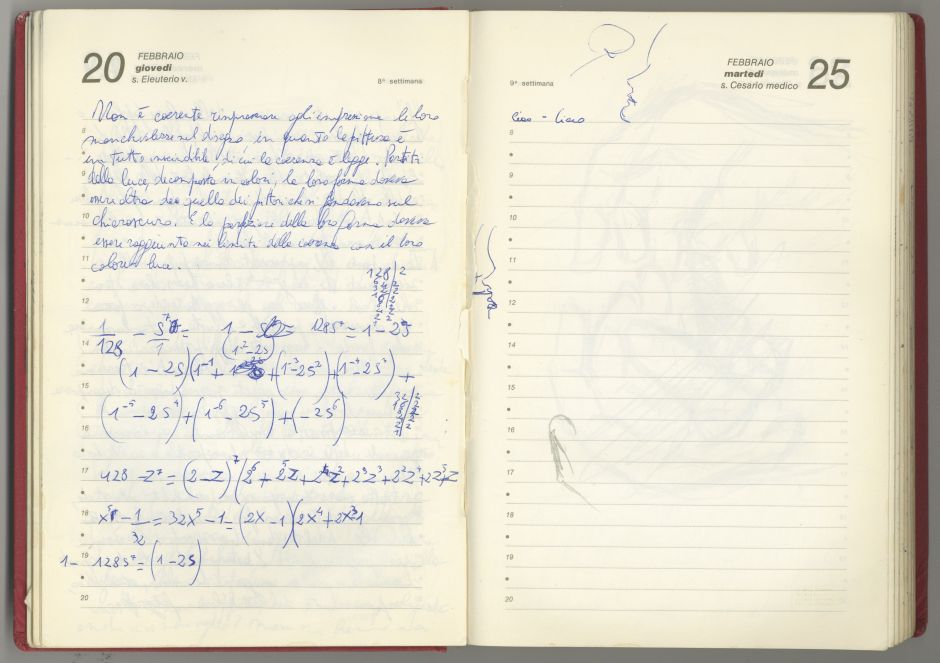 20 FEBBRAIO
giovedì
s. Eleuterio v.
8ª settimana
Non è coerente rimproverare agli impressione le loro
manchevolezze nel disegno, in quanto la pittura è
8
un tutto inscindibile, di cui la coerenza è legge. Partiti
9
dalla luce, decomposta in colori, la loro forma doveva
essere altra da quella dei pittori che si fondavano sul
10
chiaroscuro. E la perfezione della loro forma doveva
essere raggiunta nei limiti della coerenza con il loro
11
colore luce.
128 | 2
12
1/128 - s⁷/1 = 1 - = 128s⁷ = 1⁷ - 2s
14
(1⁻² - 2s)
(1 - 2s)(1⁻¹ + (1⁻³ - 2s²) + (1⁻⁴ - 2s³) +
15
(1⁻⁵ - 2s⁴) + (1⁻⁶ - 2s⁵) + (-2s⁶)
32 | 2
16
17
128 - z⁷ = (2 - z)⁷ (2⁶ + 2⁵z + z² + 2³z³ + 2²z⁴ + 2z⁵ + z
18
x⁵ - 1/32 = 32x⁵ - 1 = (2x - 1)(2x⁴ + 2x³ 1
19
1 - 128s⁷ = (1 - 2s)
20
FEBBRAIO 25
martedì
s. Cesario medico
9ª settimana
ciao - ciao
8
9
10
11
12
14
15
16
17
18
19
20